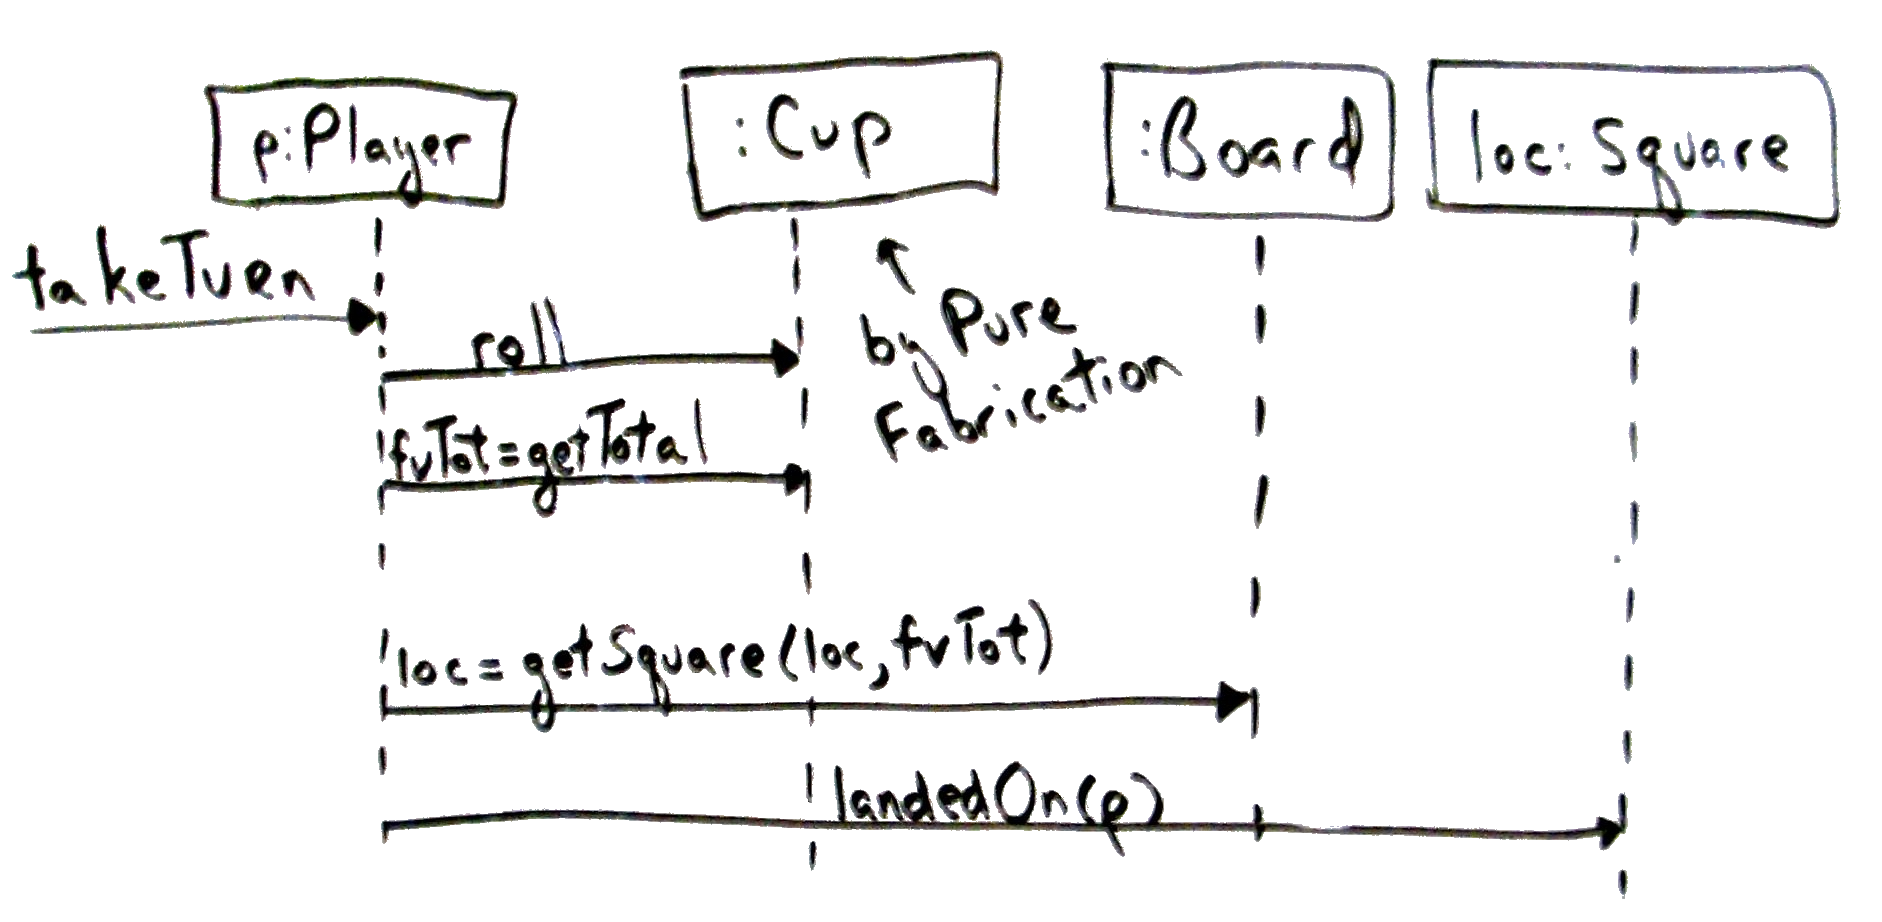 p:Player
:Cup
:Board
loc:Square
takeTurn
roll
by Pure
Fabrication
fvTot=getTotal
loc=getSquare(loc,fvTot)
landedOn(p)